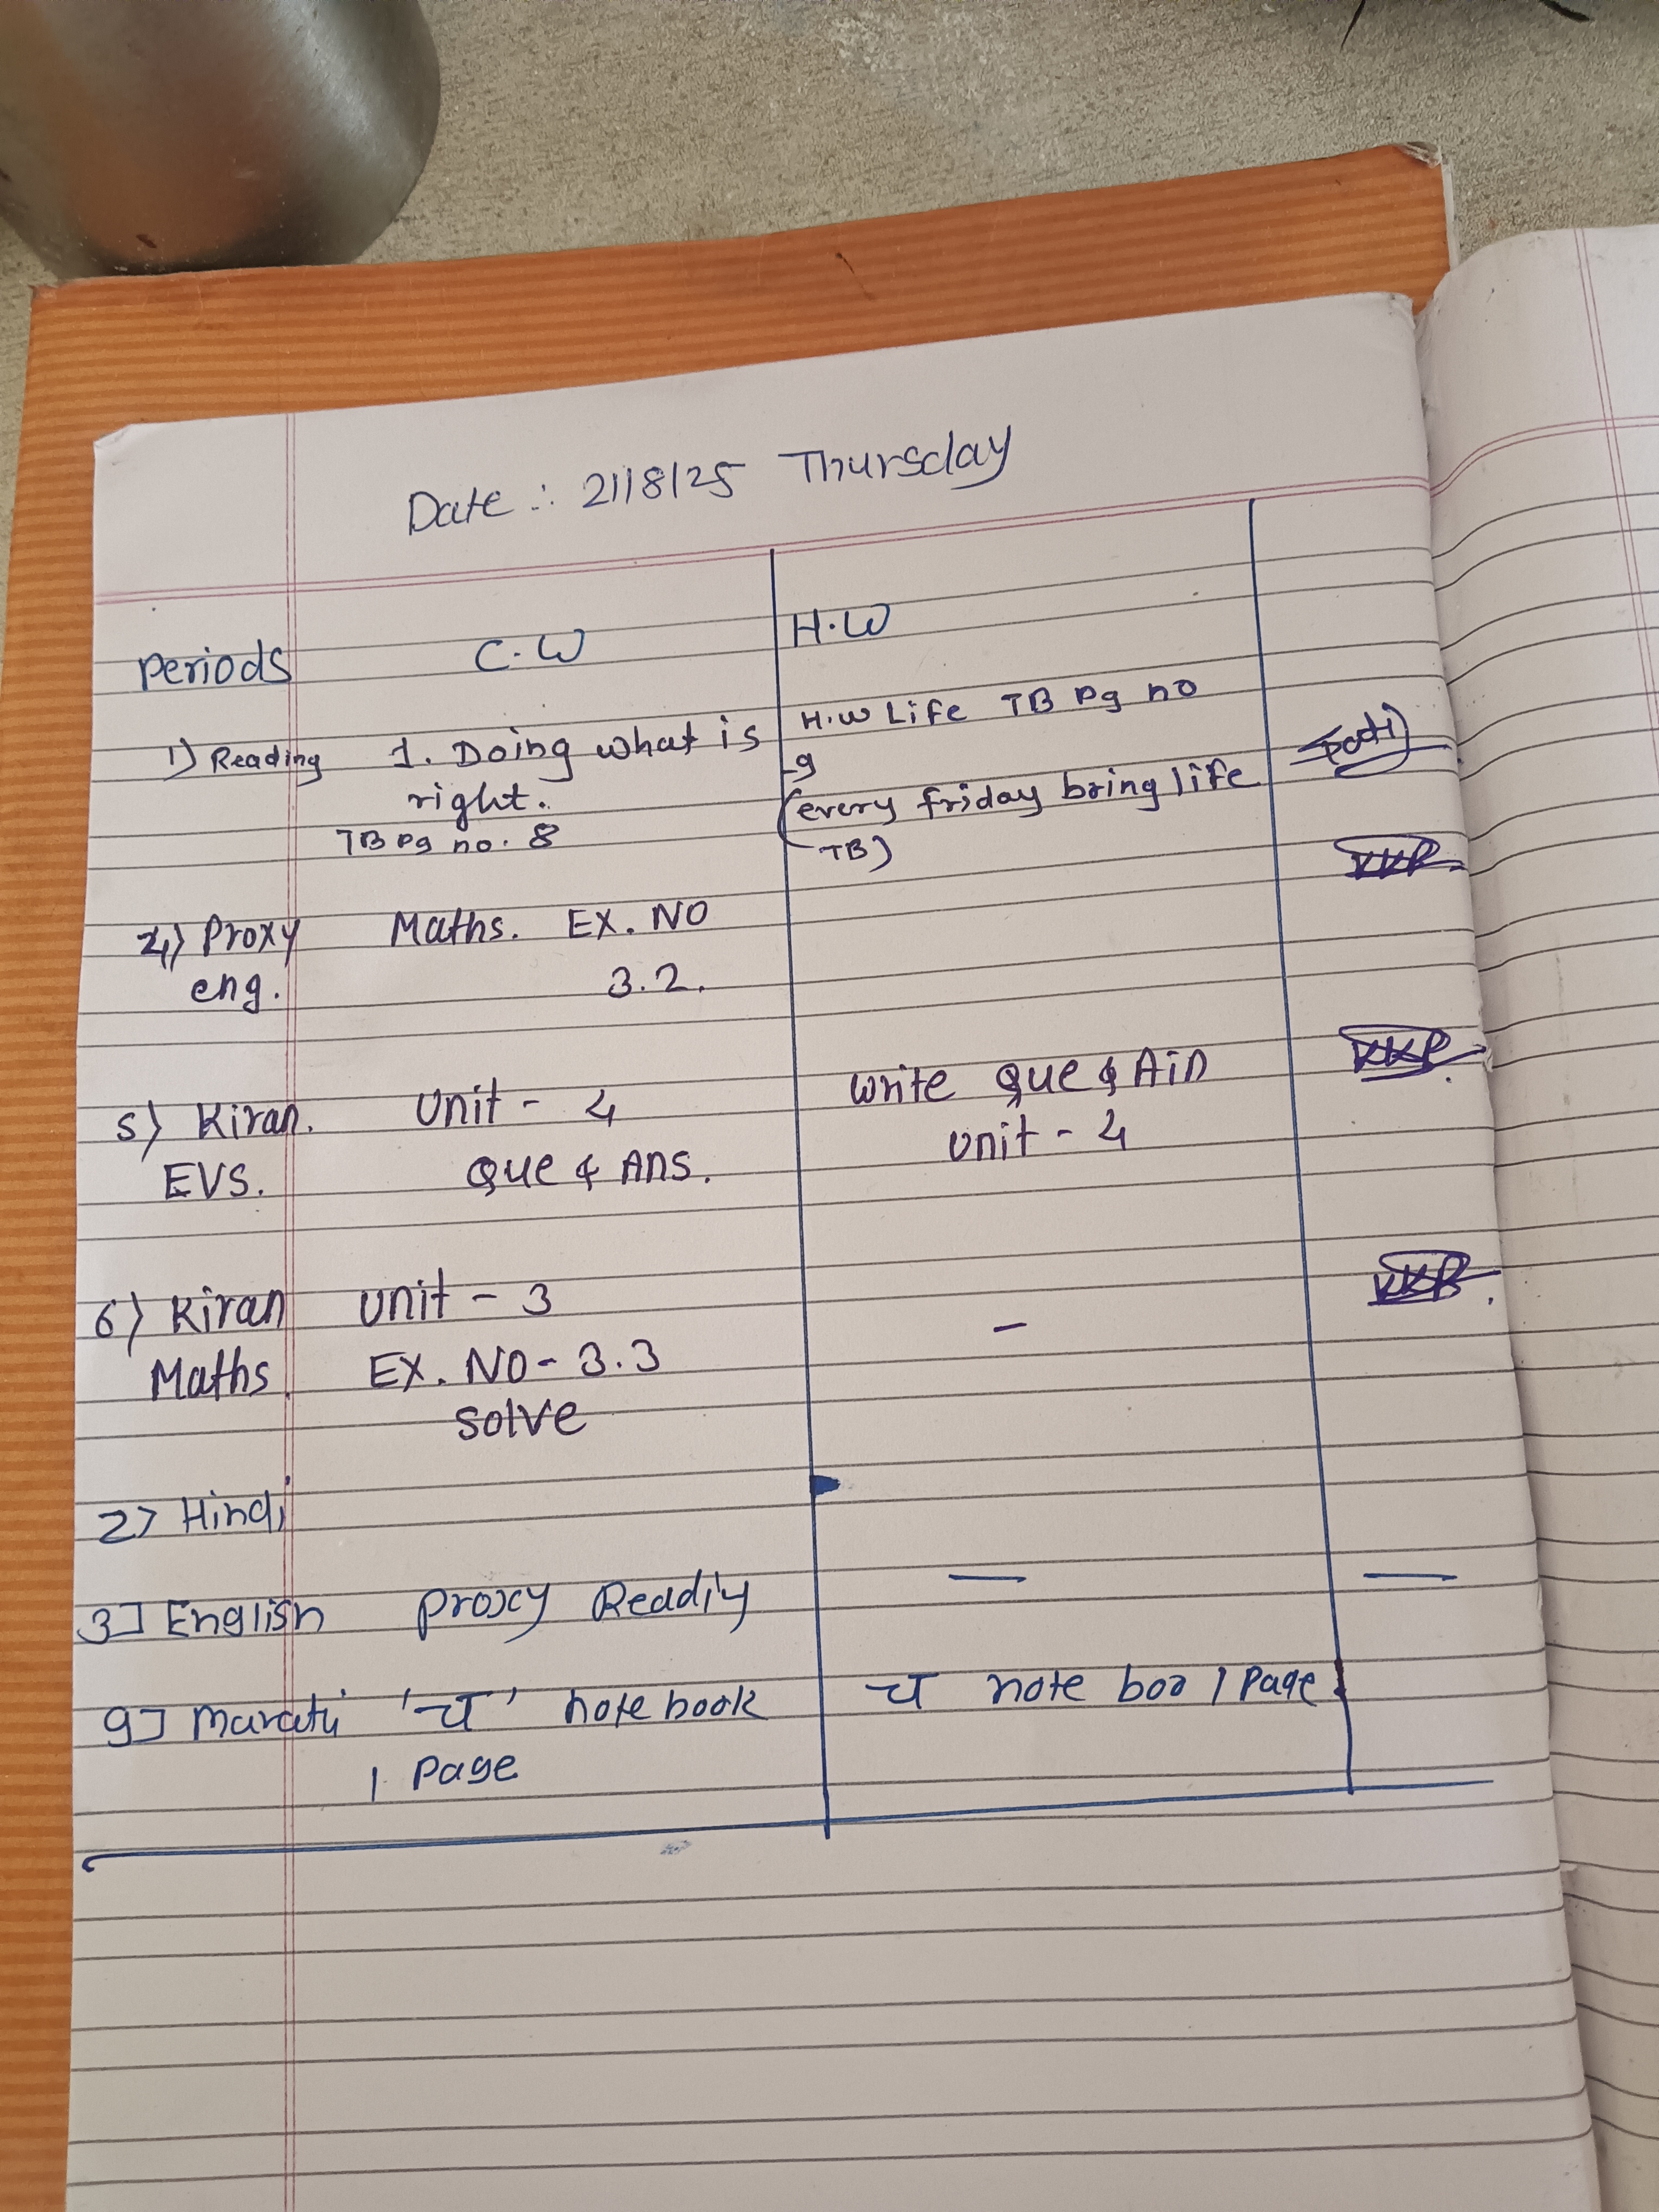 Date :- 21/8/25 Thursday
Periods C.W H.W
1) Reading 1. Doing what is H.W Life TB Pg no
right. 9
TB Pg no. 8 (every friday bring life
TB)
4) Proxy Maths. EX. NO
eng. 3.2.
5) Kiran. Unit - 4 write Que &
EVS. Que & Ans. Unit - 4
6) Kiran Unit - 3 -
Maths. EX. NO - 3.3
solve
2> Hindi
3] English Proxy Readiy — —
9] Marathi 'च' notebook च note boo 1 Page
1 Page